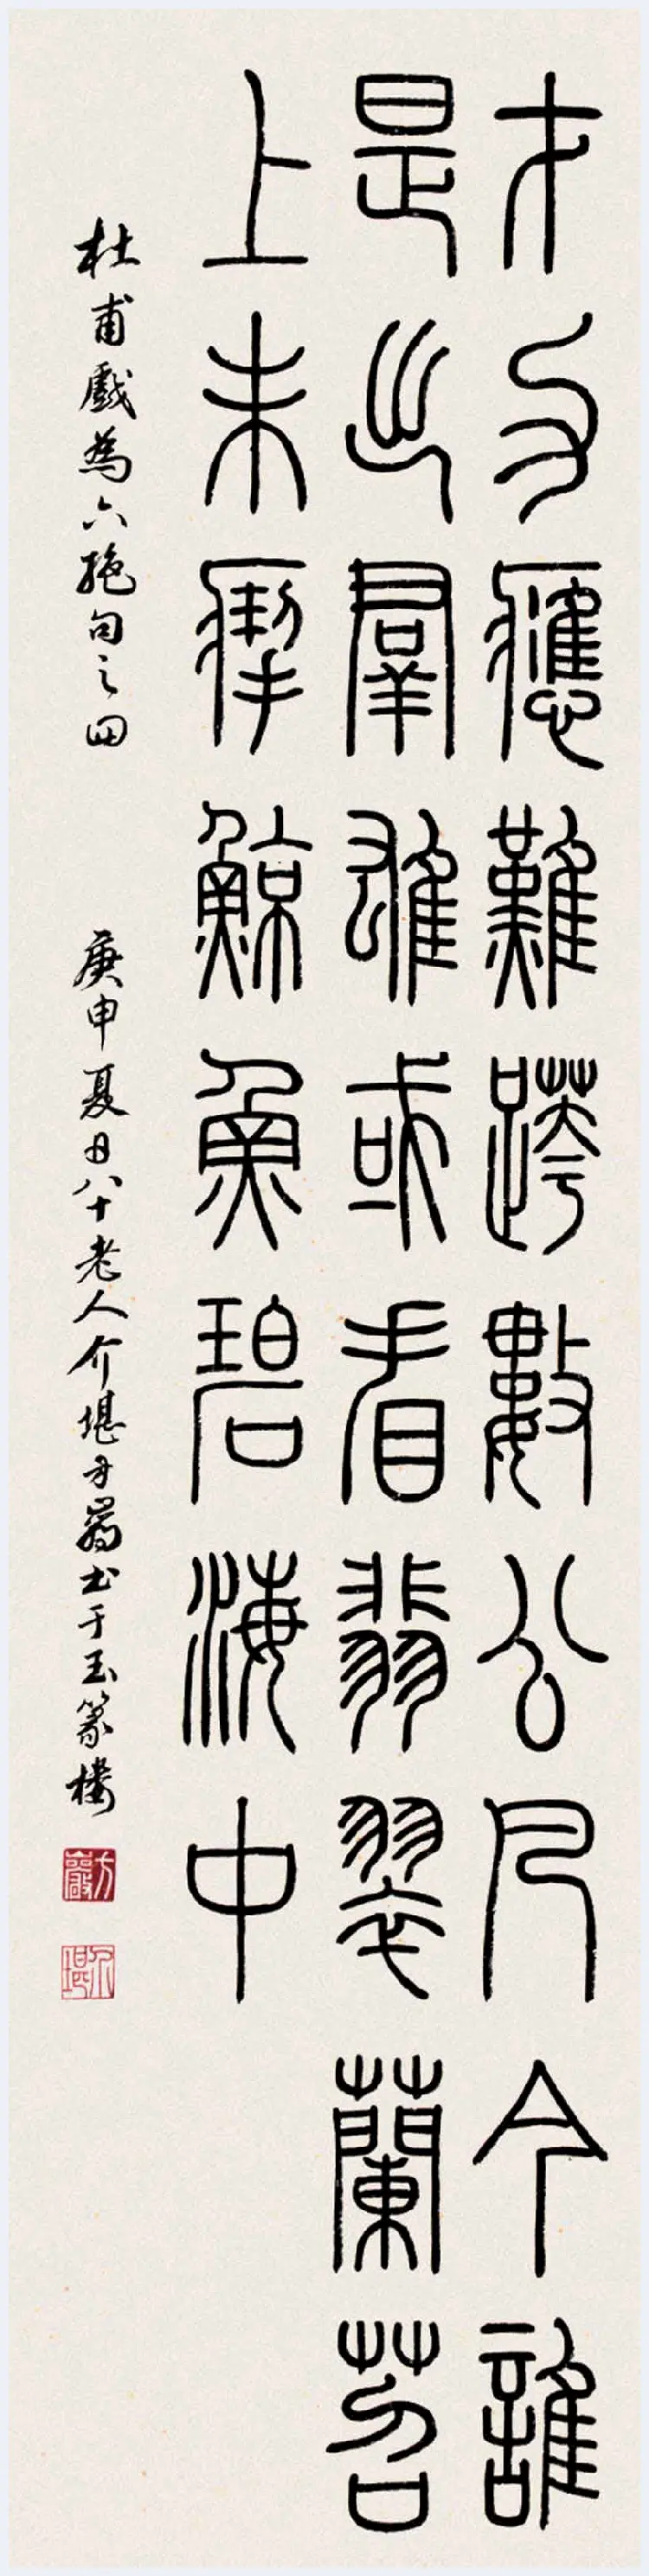 才力應難跨數公凡今誰
是出羣雄或看翡翠蘭苕
上未掣鯨魚碧海中
杜甫戲為六絶句之四
庚申夏日八十老人介堪方巖書于玉篆樓
方巖
介堪